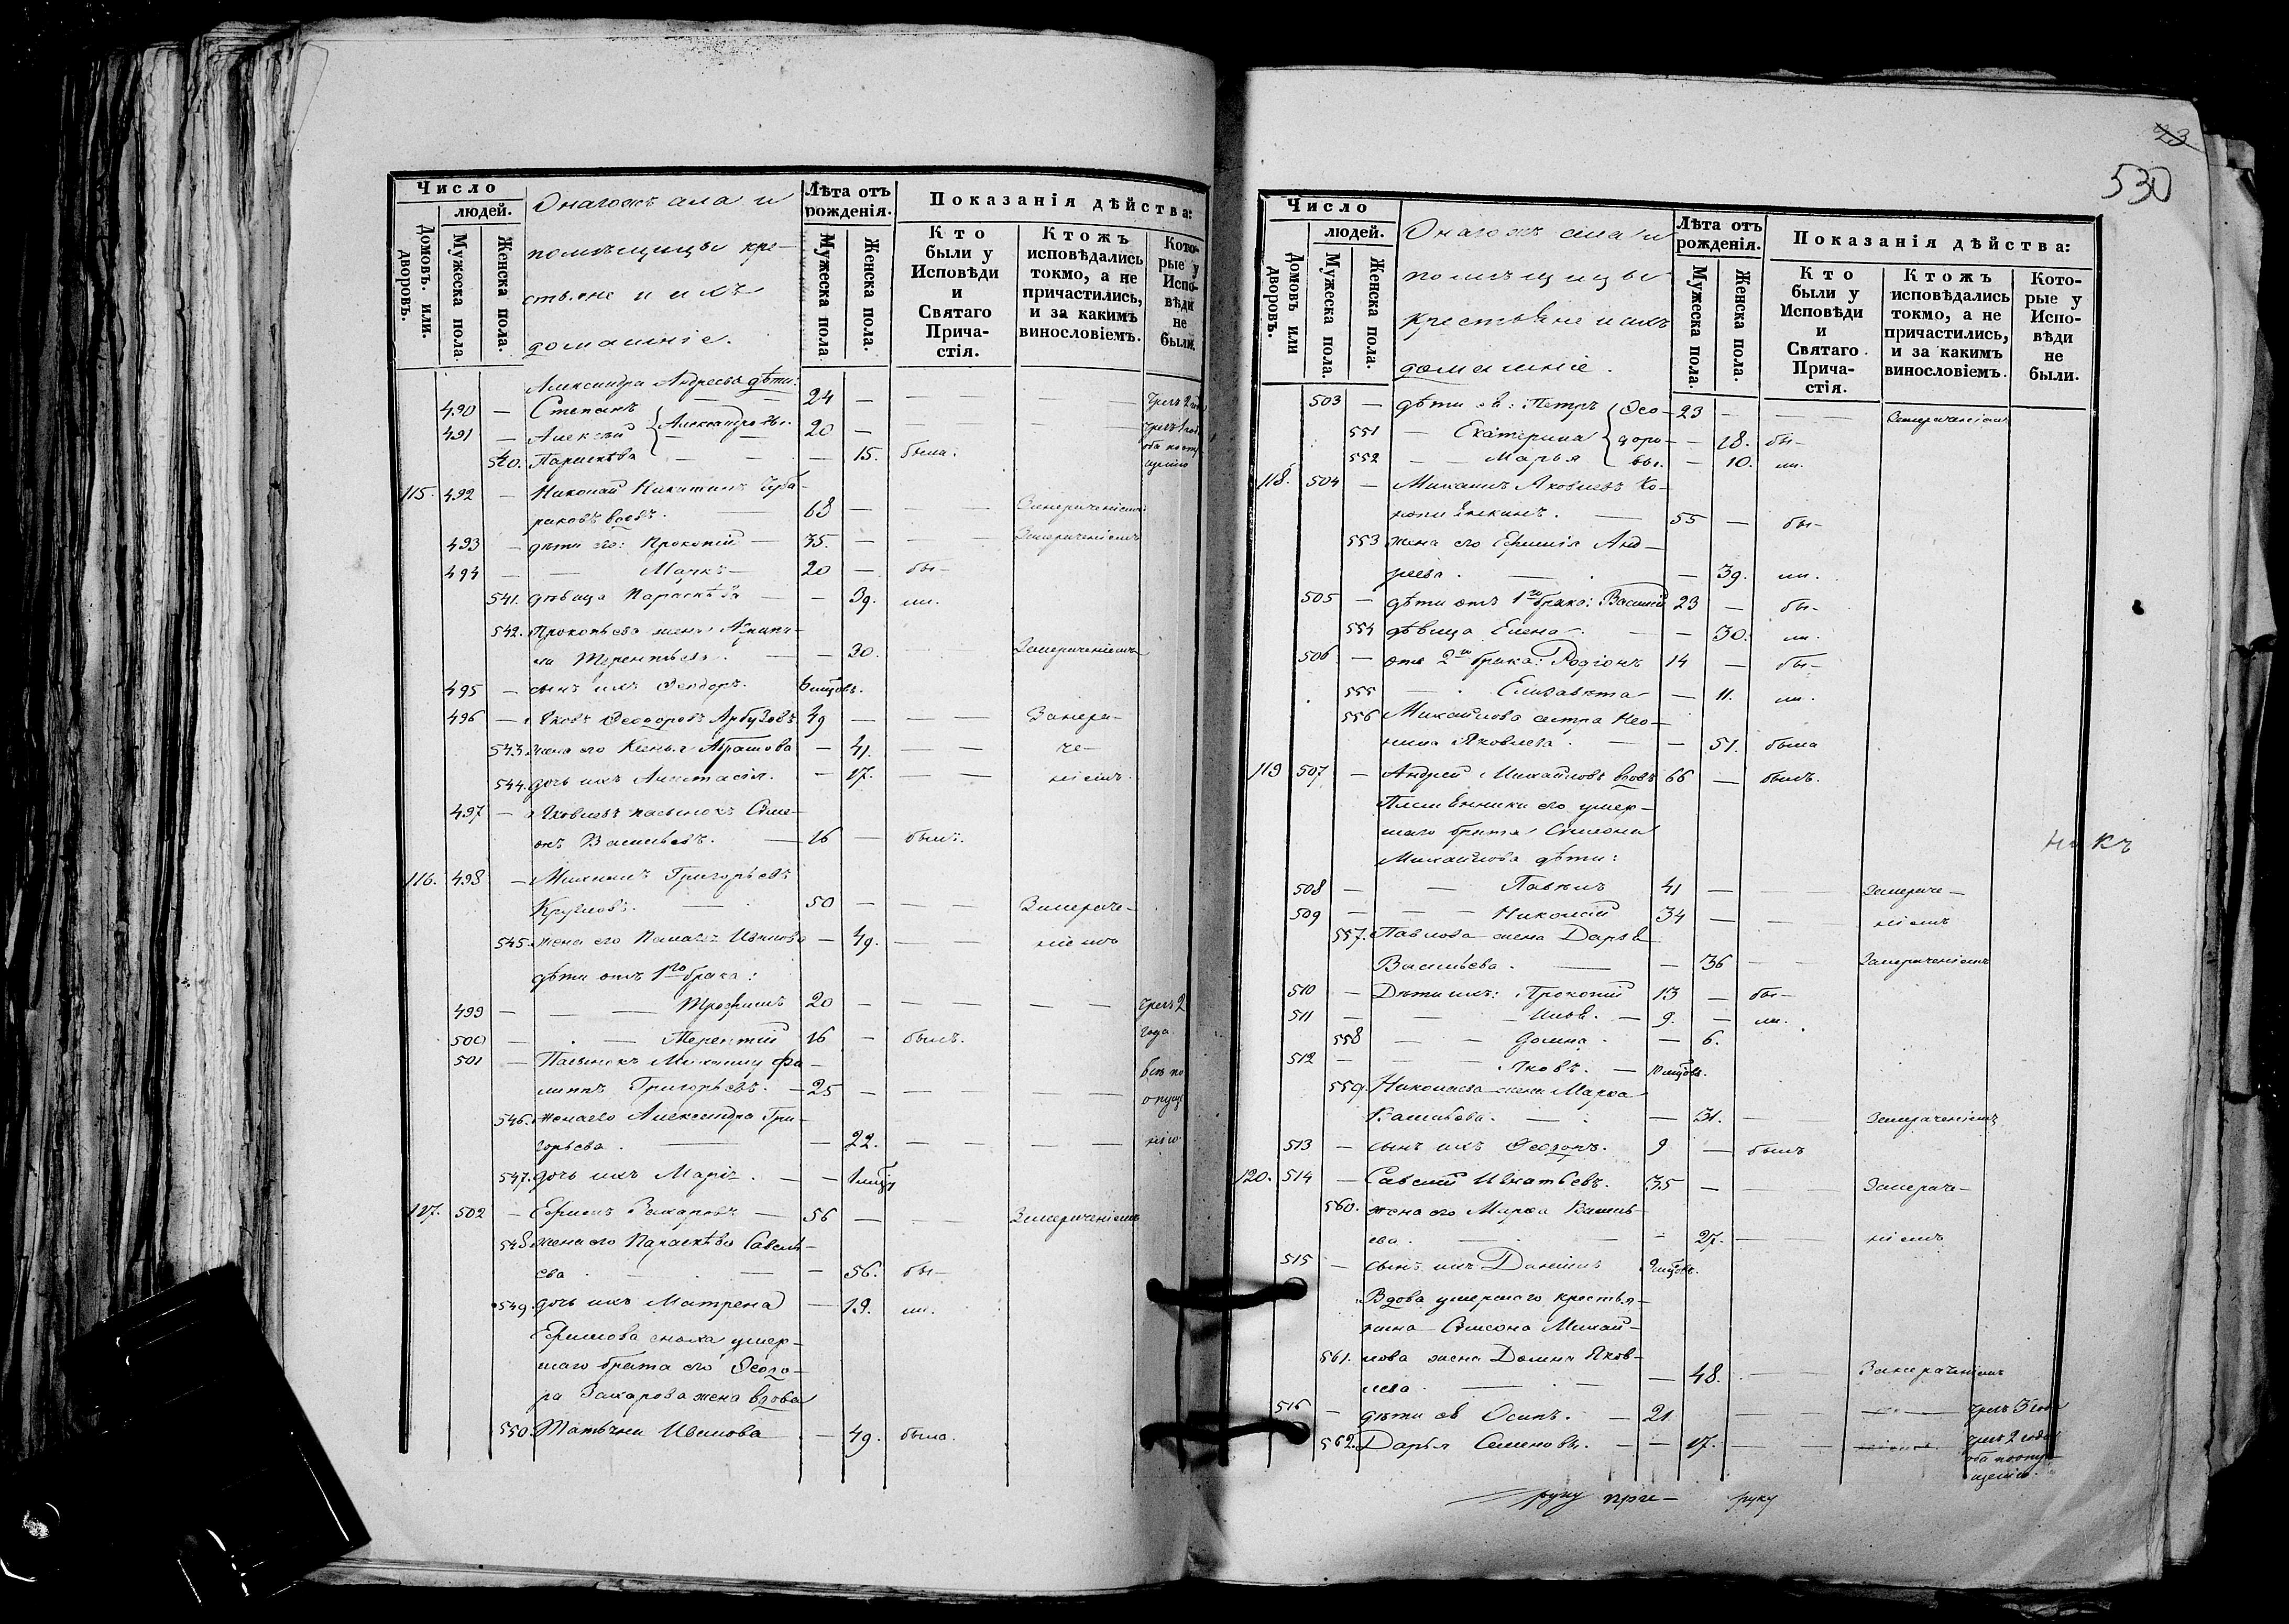 Число
людей.
Домовъ. или.
дворовъ.
Мужеска пола
Женска пола.
Онагожъ села и
помѣщицы кре-
стьяне и ихъ
домашніе.
Лѣта отъ
рожденія.
Мужеска пола
Женска пола.
Показанія дѣйства:
Кто
были у
Исповѣди
и
Святаго
Прича-
стія.
Ктожъ
исповѣдались
токмо, а не
причастились,
и за какимъ
винословіемъ.
Кото-
рые у
Испо-
вѣди
не
были.
Александра Андреева дѣти:
490 — Степанъ 24 —
491 — Алексѣй Александровы. 20 —
540. Параскѣва — 15. была.
115. 492 — Николай Никитинъ
вдовъ. 63 — Занереченіемъ
493 — дѣти его: Прокопій 35. — Занереченіемъ
494 — Маркъ 20 — бы-
541. дѣвица Параскѣва — 39. ли.
542. Прокопьева жена
Терентьева. — 30. Занереченіемъ
495 — сынъ ихъ Ѳеодоръ. 6 мцовъ.
496 — Яковъ Ѳеодоровъ Арбузовъ 49 — Занере-
543. жена его Ксенья Абрамова — 41. че-
544. дочь ихъ Анастасія. — 17. ніемъ.
497 — Яковлевъ пасынокъ Симе-
онъ Васильевъ. 16 — былъ.
116. 498 — Михаилъ Григорьевъ
Кругловъ. 50 — Занерече-
545. жена его Пелагея Иванова — 49. ніемъ
дѣти отъ 1го брака:
499 — Трофимъ 20 — чрезъ 2
500 — Терентій 16 — былъ. года.
501 — Пасынокъ Михаилу Фи-
липпъ Григорьевъ. — 25 — всѣ по
546. жена его Александра Гри- опуще
горьева. — 22. — нію.
547. дочь ихъ Марія. — 1 мцъ
117. 502 — Ефимъ Захаровъ — 56 — Занереченіемъ
548. жена его Параскѣва Савель-
ева — 56. бы-
549. дочь ихъ Матрена — 19. ли.
Ефимова сноха умер-
шаго брата его Ѳеодо-
ра Захарова жена вдова
550. Татьяна Иванова — 49. была.
23
530
Число
людей.
Домовъ или
дворовъ.
Мужеска пола.
Женска пола.
Онагожъ села и
помѣщицы
крестьяне и ихъ
домашніе.
Лѣта отъ
рожденія.
Мужеска пола.
Женска пола.
Показанія дѣйства:
Кто
были у
Исповѣди
и
Святаго
Прича-
стія.
Ктожъ
исповѣдались
токмо, а не
причастились,
и за какимъ
винословіемъ.
Кото-
рые у
Испо-
вѣди
не
были.
503 — дѣти ея: Петръ Ѳео- 23 — Занереченіемъ
551 — Екатерина доро- — 18. бы-
552 — Марья вы. — 10. ли.
118. 504 — Михаилъ Яковлевъ Ко-
55 — бы-
553 жена его Ефимія Анд-
реева. — 39. ли.
505 — дѣти отъ 1го брака: Василій 23 — бы-
554 дѣвица Елена — 30. ли.
506 — отъ 2го брака: Родіонъ 14 — бы-
555 — Елизавѣта — 11. ли.
556 Михайлова сестра Нео-
нила Яковлева. — 51. была
119 507 — Андрей Михайловъ вдовъ 66 — былъ.
Племянники его умер-
шаго брата Симеона
Михайлова дѣти:
508 — Павелъ 41 — Занерече-
509 — Николай 34 — ніемъ
557. Павлова жена Дарья
Васильева. — 36 Занереченіемъ
510 — Дѣти ихъ: Прокопій 13 — бы-
511 — Илья. 9. — ли.
558 — Домна. — 6.
512 — Яковъ. — 10 мцовъ.
559. Николаева жена Марѳа
Васильева. — 31. Занереченіемъ
513 — сынъ ихъ Ѳеодоръ. 9 — былъ
120. 514 — Савелій Игнатьевъ. 35 — Занерече-
560. жена его Марѳа Василь-
ева. — 27. ніемъ
515 — сынъ ихъ Даніилъ 9 мцовъ.
Вдова умершаго крестья-
нина Симеона Михай-
561. лова жена Домна Яков-
лева. — 48. Занереченіемъ
516 — дѣти ея Осипъ. — 21 — чрезъ 3 года
562. Дарья Семеновы. — 17. — чрезъ 2 года
оба по опу-
щенію.
руку при- руку